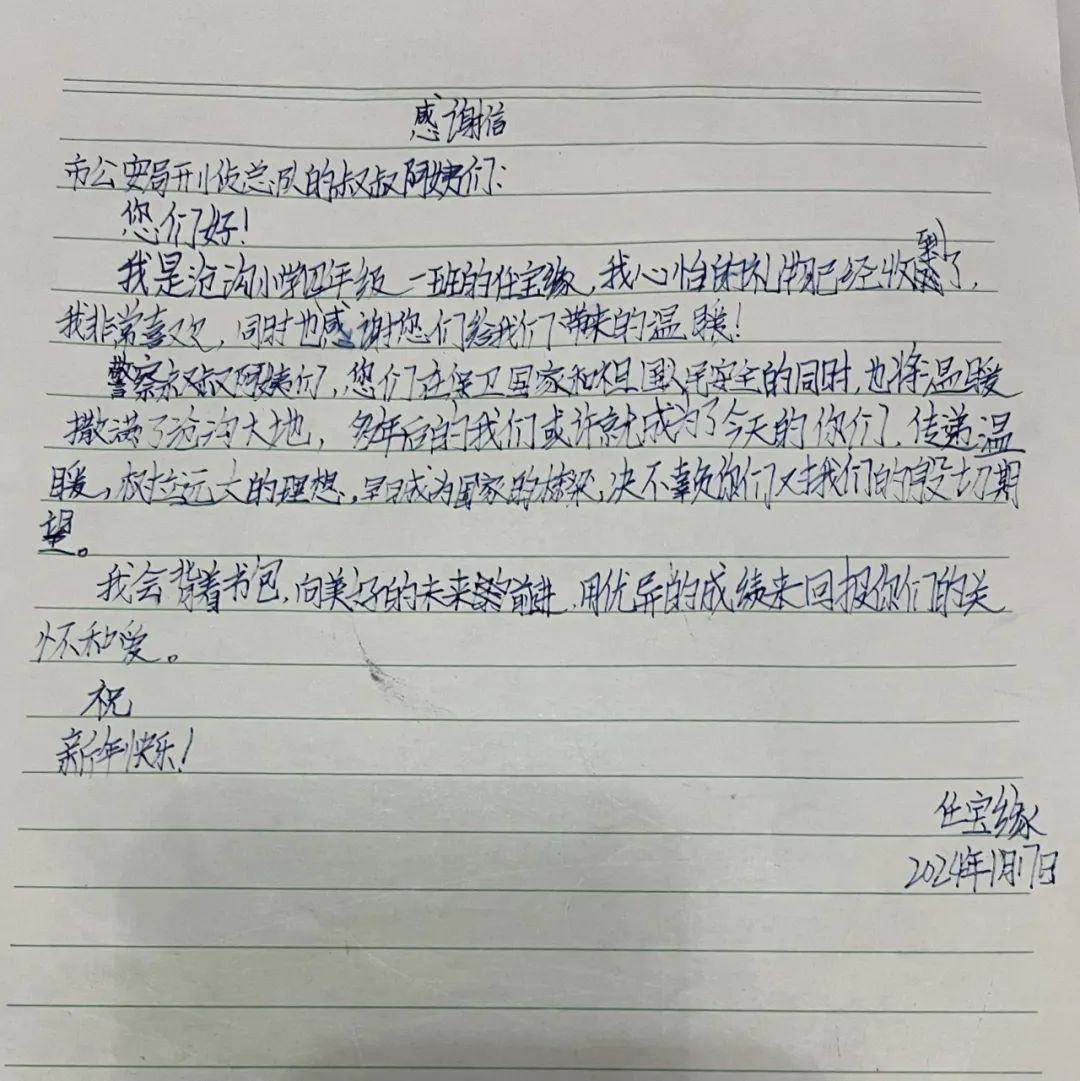 感谢信
市公安局刑侦总队的叔叔阿姨们:
您们好!
我是沧沟小学四年级一班的任宝缘,我心怡的礼物已经收到了,
我非常喜欢,同时也感谢您们给我们带来的温暖!
警察叔叔阿姨们,您们在保卫国家和祖国人民安全的同时,也将温暖
撒满了沧沟大地,多年后的我们或许就成为了今天的你们,传递温
暖,树立远大的理想,早日成为国家的栋梁,决不辜负你们对我们的殷切期
望。
我会背着书包,向美好的未来前进,用优异的成绩来回报你们的关
怀和爱。
祝
新年快乐!
任宝缘
2024年1月17日